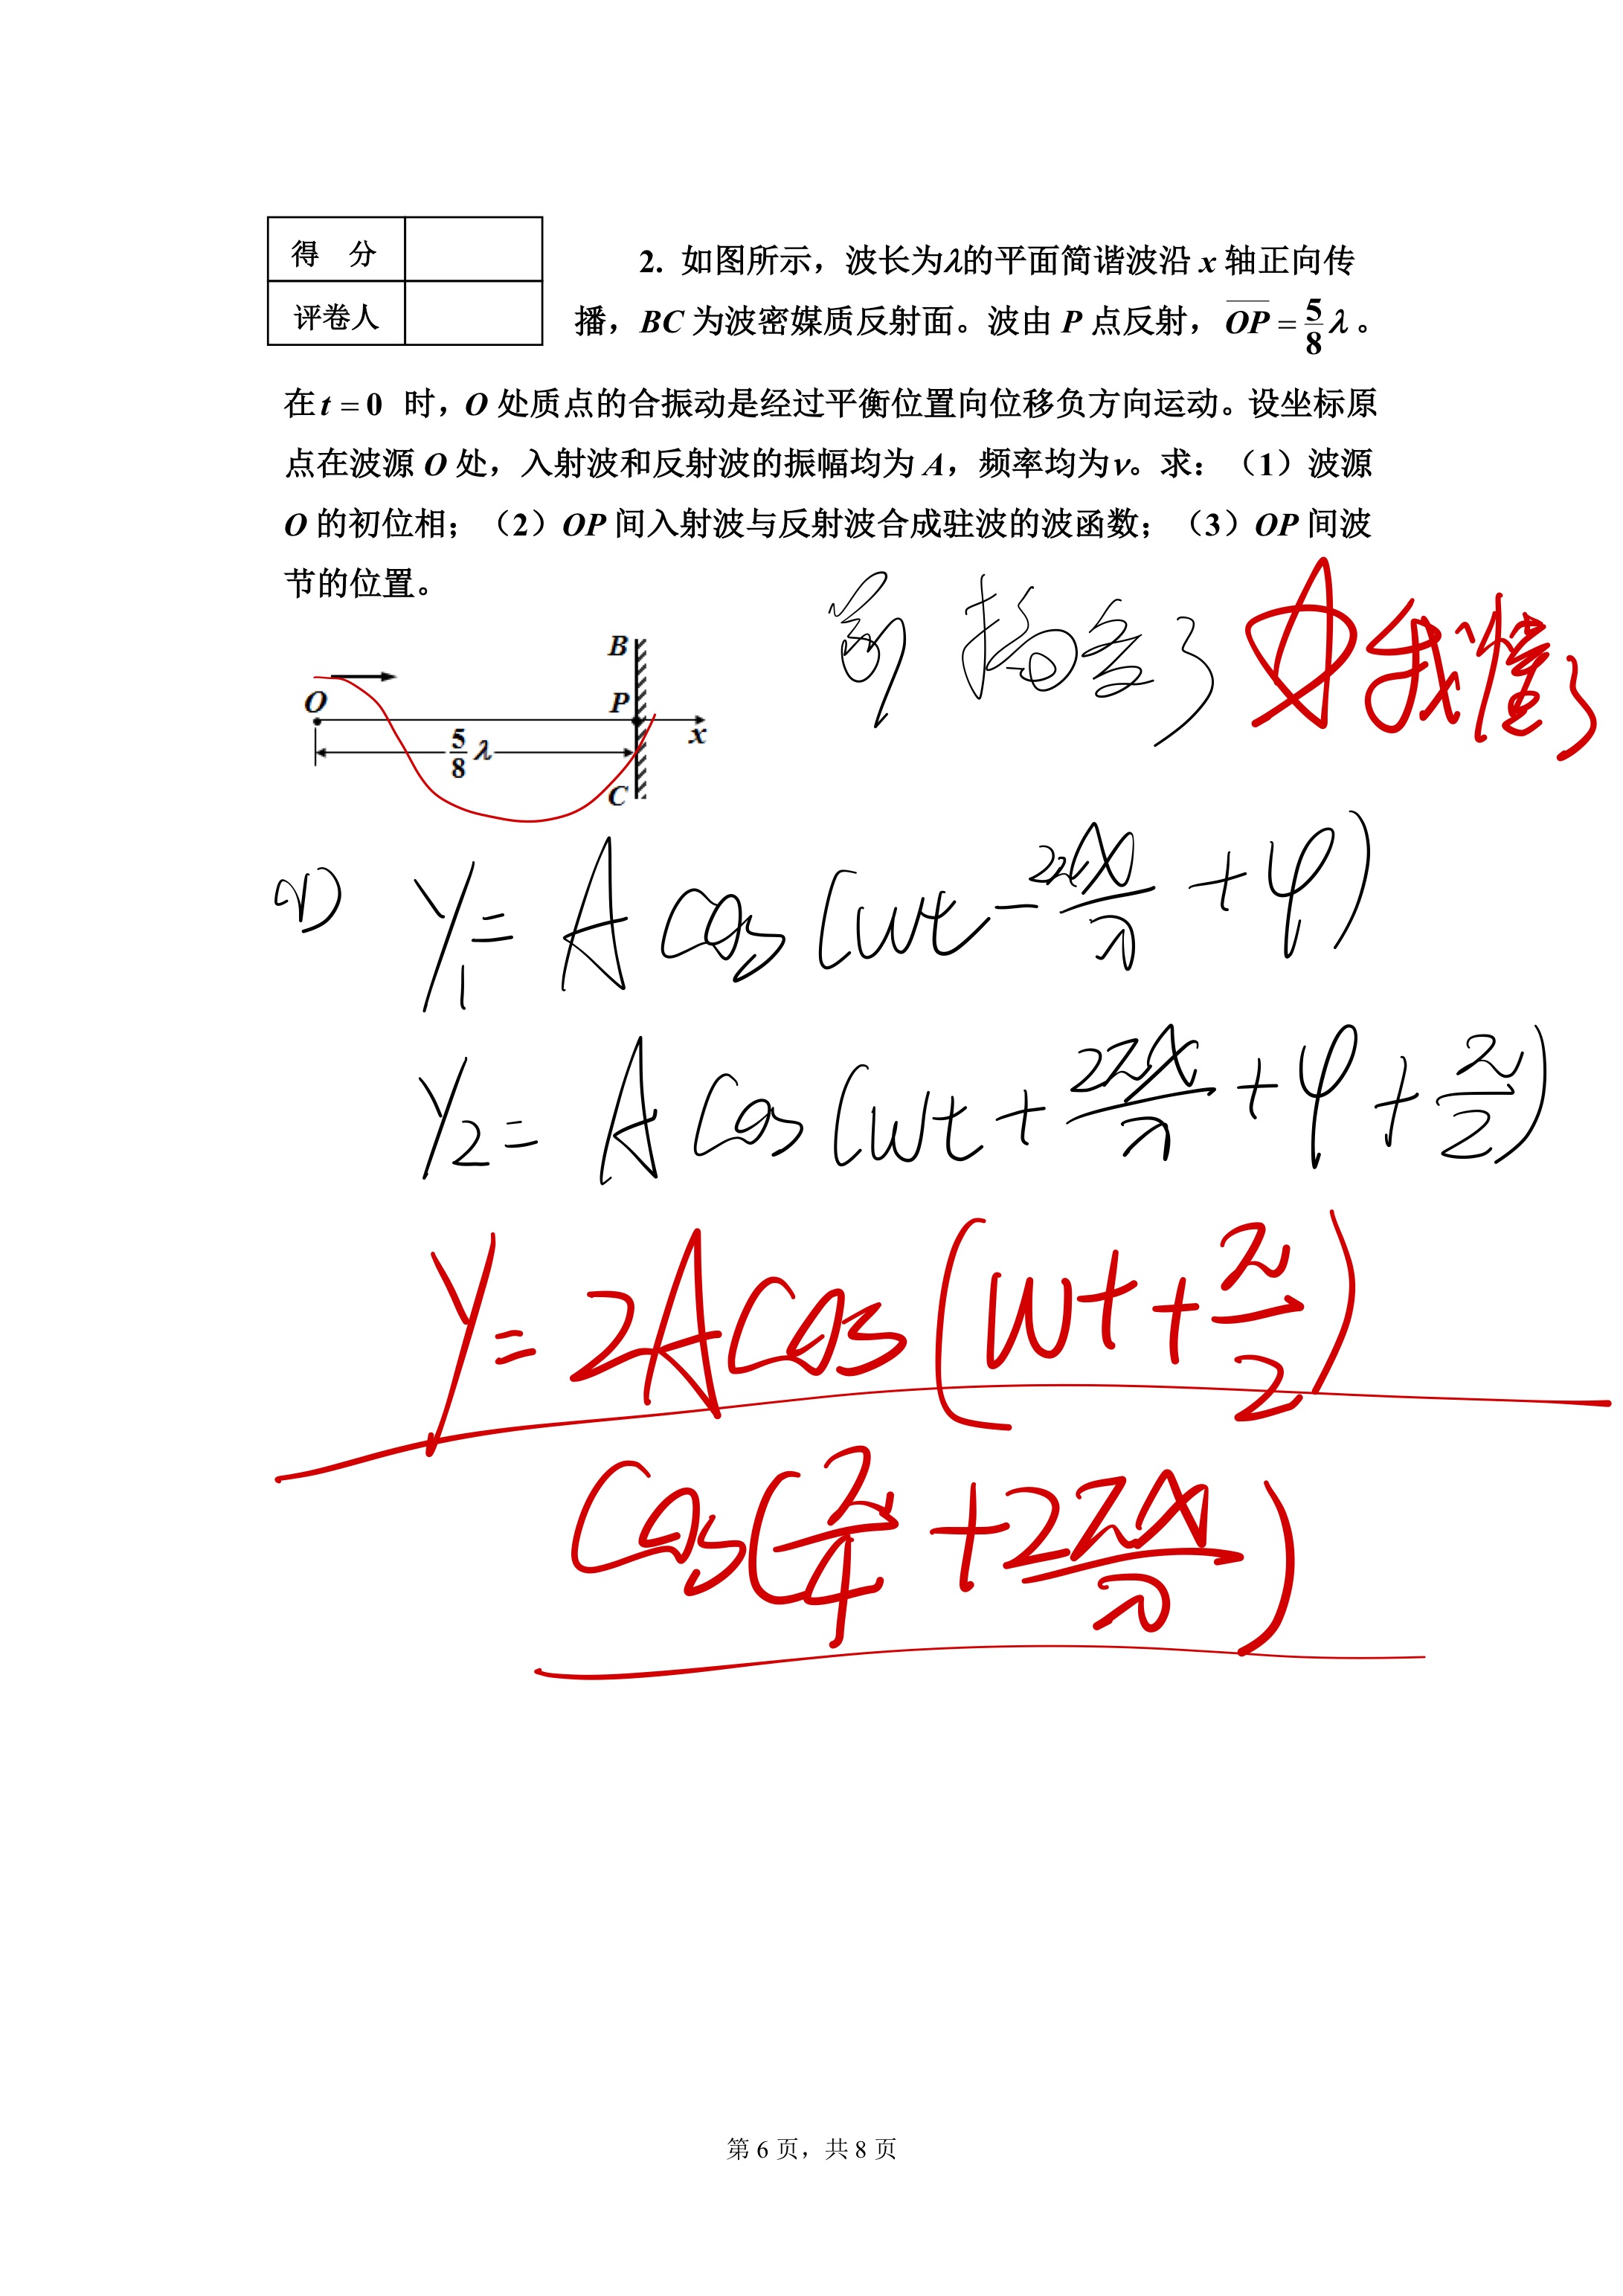 得 分
评卷人
2. 如图所示，波长为λ的平面简谐波沿 x 轴正向传
播，BC 为波密媒质反射面。波由 P 点反射，OP = 5/8 λ 。
在 t = 0 时，O 处质点的合振动是经过平衡位置向位移负方向运动。设坐标原
点在波源 O 处，入射波和反射波的振幅均为 A，频率均为 ν。求：（1）波源
O 的初位相；（2）OP 间入射波与反射波合成驻波的波函数；（3）OP 间波
节的位置。
我懂了
B
O
P
x
5/8 λ
C
(1) Y₁ = A cos(wt − 2πx/λ + φ)
Y₂ = A cos(wt + 2πx/λ + φ + π/2)
Y = 2A cos(wt + π/2)
cos(π/4 + 2πx/λ)
第 6 页，共 8 页